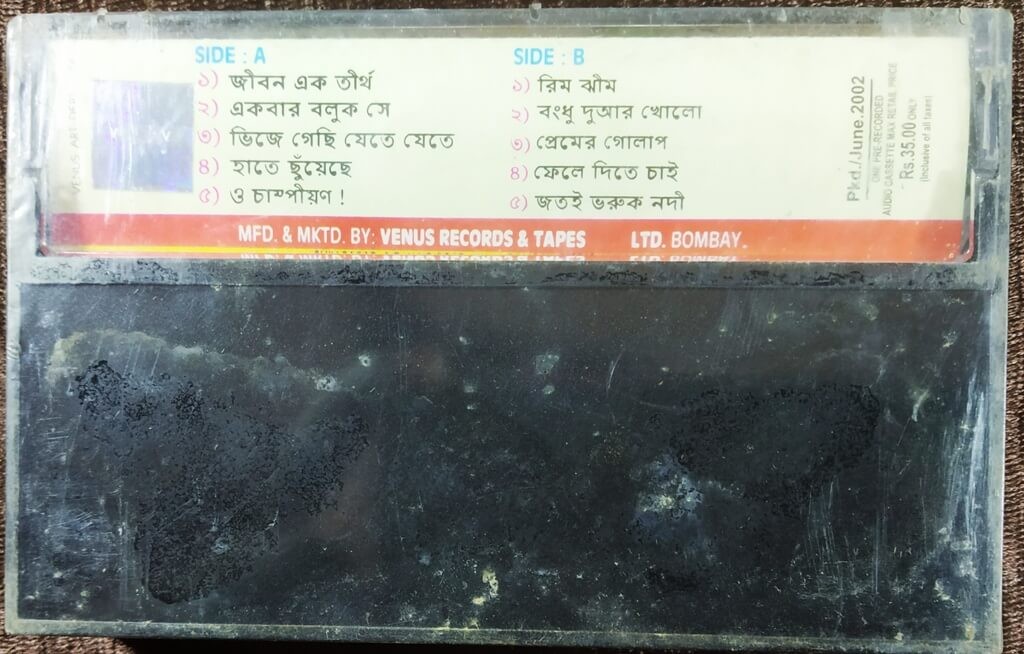 SIDE : A
১) জীবন এক তীর্থ
২) একবার বলুক সে
৩) ভিজে গেছি যেতে যেতে
৪) হাতে ছুঁয়েছে
৫) ও চাম্পীয়ণ !
SIDE : B
১) রিম ঝীম
২) বংধু দুআর খোলো
৩) প্রেমের গোলাপ
৪) ফেলে দিতে চাই
৫) জতই ভরুক নদী
Pkd./June.2002
ONE PRE-RECORDED
AUDIO CASSETTE MAX RETAIL PRICE
Rs.35.00 ONLY
(Inclusive of all taxes)
MFD. & MKTD. BY: VENUS RECORDS & TAPES LTD. BOMBAY.